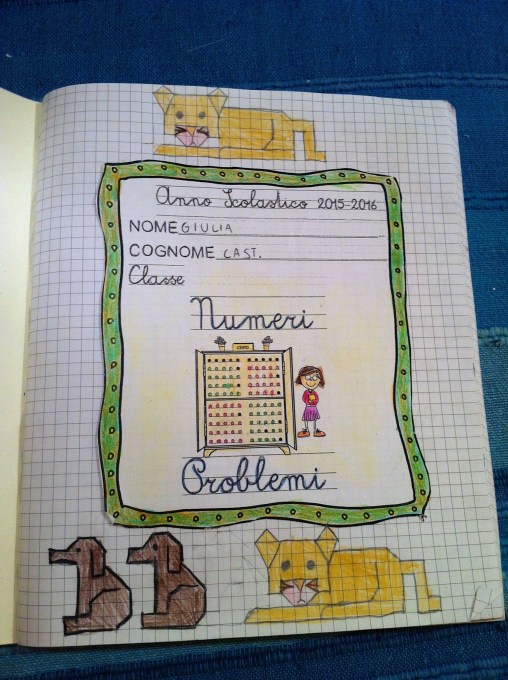 Anno Scolastico 2015-2016
NOME GIULIA
COGNOME CAST.
Classe
Numeri
Problemi